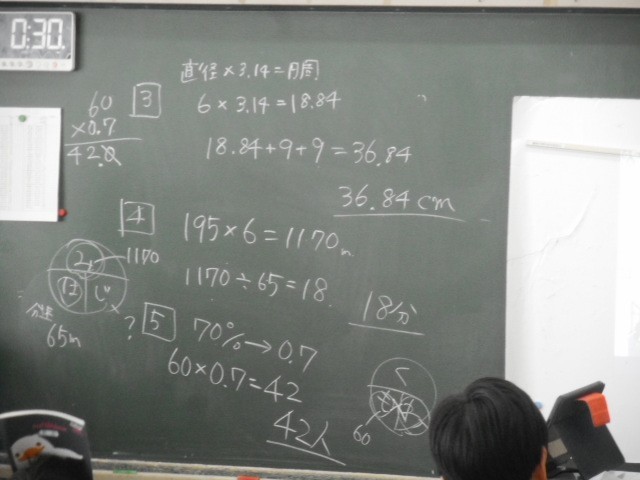 0:30
直径×3.14=円周
3
6×3.14=18.84
60
×0.7
42.0
18.84+9+9=36.84
36.84cm
4
195×6=1170m
1170÷65=18
18分
1170
み
は
じ
×
分速
65m
?
5
70%→0.7
60×0.7=42
42人
60